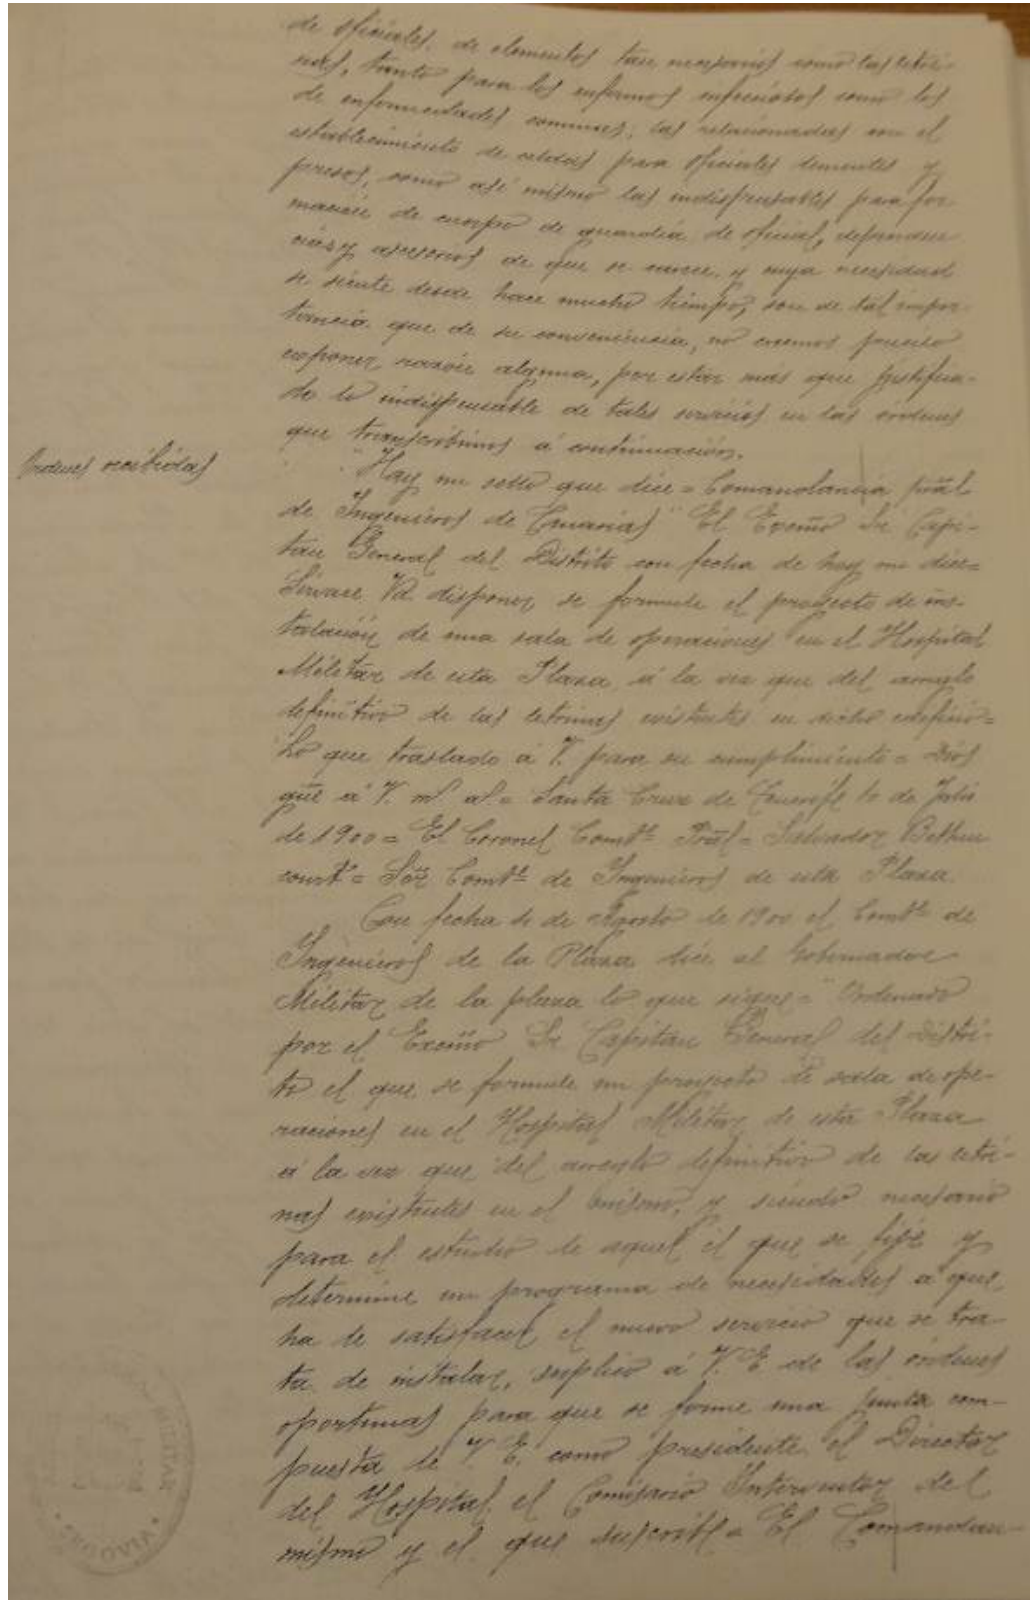 de oficiales, de elementos tan necesarios como las letri-
nas, tanto para los enfermos infecciosos como los
de enfermedades comunes; las relacionadas con el
establecimiento de celdas para oficiales dementes y
presos, como asi mismo las indispensables para for
macion de cuerpo de guardia de oficial, dependen
cias y accesorios de que se carece, y cuya necesidad
se siente desde hace mucho tiempo, son de tal impor-
tancia que de su conveniencia, no creemos preciso
exponer razón alguna, por estar mas que justifica-
do lo indispensable de tales servicios en las ordenes
que transcribimos á continuación.
Ordenes recibidas
"Hay un sello que dice = Comandancia pral
de Ingenieros de Canarias" El Excmo Sr Capi-
tan General del Distrito con fecha de hoy me dice=
Sirvase Vd disponer, se formule el proyecto de ins-
talación de una sala de operaciones en el Hospital
Militar de esta Plaza á la vez que del arreglo
definitivo de las letrinas existentes en dicho edificio=
Lo que traslado á V. para su cumplimiento = Dios
gue á V. ms as = Santa Cruz de Tenerife de Julio
de 1900 = El Coronel Comte Pral = Salvador Bethen
court = Sor Comte de Ingenieros de esta Plaza.
Con fecha de Agosto de 1900 el Comte de
Ingenieros de la Plaza dice al Gobernador
Militar de la plaza lo que sigue = "Ordenado
por el Excmo Sr Capitan General del Distri-
to el que se formule un proyecto de sala de ope-
raciones en el Hospital Militar de esta Plaza
á la vez que del arreglo definitivo de las letri-
nas existentes en el mismo, y siendo necesario
para el estudio de aquel el que se fije y
determine un programa de necesidades á que
ha de satisfacer el nuevo servicio que se tra-
ta de instalar, suplico á V. E. de las ordenes
oportunas para que se forme una junta com-
puesta de V. E. como presidente el Director
del Hospital, el Comisario Interventor del
mismo y el que suscribe = El Comandan-
MILITAR